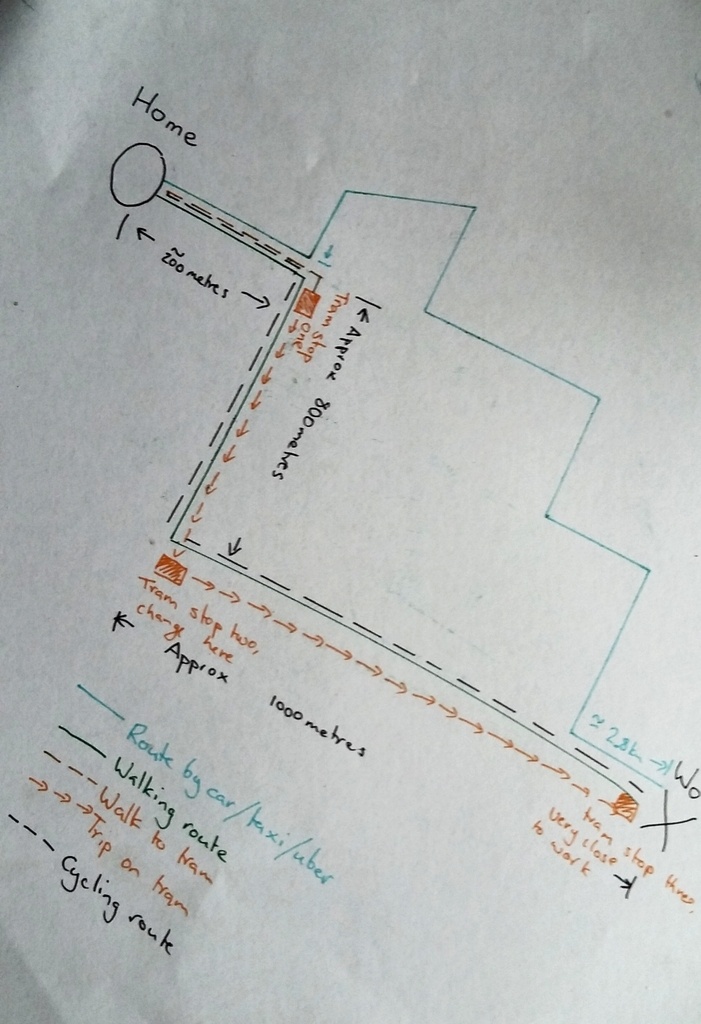 Home
≈
200 metres
Tram stop
one!
Approx 800 metres
Tram stop two,
change here
Approx 1000 metres
≈ 2.8km
Wo
tram stop three,
very close
to work
Route by car/taxi/uber
Walking route
Walk to tram
Trip on tram
Cycling route